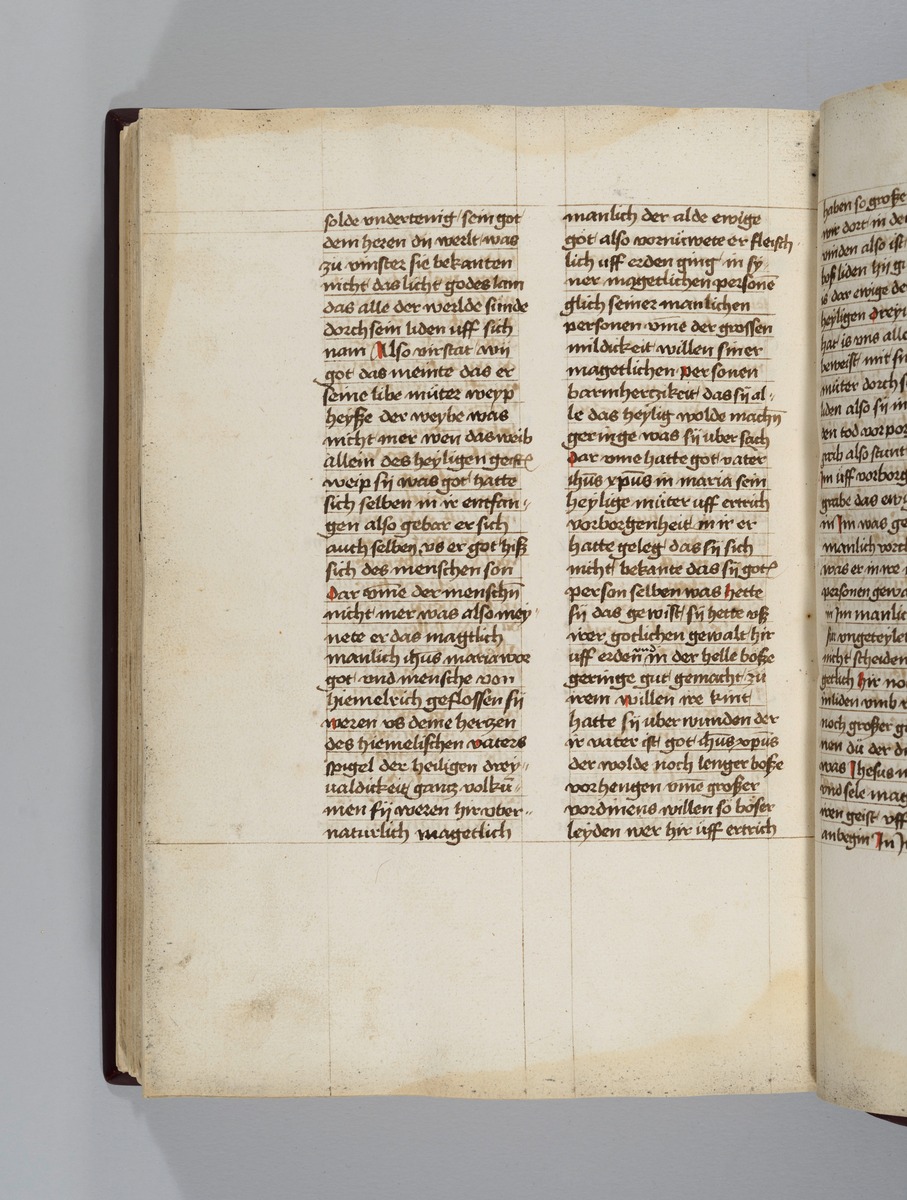 solde vndertenig sein got
dem heren dy werlt was
zu vinster sie bekanten
nicht das licht godes lam
das alle der werlde sunde
dorch sein liden uff sich
nam Also virstat wy
got das meinte das er
seine libe muter weyp
heysse der weybe was
nicht mer wen das weib
allein des heyligen geist
weip sy was got hatte
sich selben in ir entfan-
gen also gebar er sich
auch selben vs er got hiß
sich des menschen son
Dar vm̄e der menschn̄
nicht mer was also mey-
nete er das magtlich
manlich ihus maria wor
got vnd mensche von
hiemelrich geflossen sy
weren vs deme hertzen
des hiemelischen vaters
spigel der heiligen drey-
ualdickeit gantz volku̅-
men sy weren hir vber-
naturlich magetlich
manlich der alde ewige
got also vornuwete er fleisch-
lich uff erden ging in sy-
ner magetlichen persone̅
glich seiner manlichen
personen vme der grossen
mildickeit willen siner
magetlichen personen
barmhertzikeit das sy al-
le das heylig wolde machn̄
geringe was sy uber sach
Dar vme hatte got vater
ihūs xp̄us in maria sein
heylige muter uff ertrich
vorborgenheit in ir er
hatte geleg das sy sich
nicht bekante das sy got
person selben was hette
sy das gewist sy hette vß
irer gotlichen gewalt hir
uff erden̄ vnd in der helle boße
geringe gut gemacht zu
irem willen ire kint
hatte sy uber wunden der
ir vater ist got ihūs xp̄us
der wolde noch lenger boße
vorhengen vm̄e großer
vordinens willen so boser
leyden wer hir uff ertrich
haben so große
wir dort in de
vinden also ist
boß liden hy
dar ewige de
heyligen Drey
hat is vns alle
beweist mit
muter dorch
liden also sy
den tod vor
grab also stunt
uff vorborg
grabe das ewi
Im was ge
manlich
was er in ire
personen gewa
Im manlic
vngeteylet
nicht scheiden
getlich hir no
miliden vmb
noch großer
nen du der
was Jhesus
vnd sele mag
ren geist vff
anbegin In